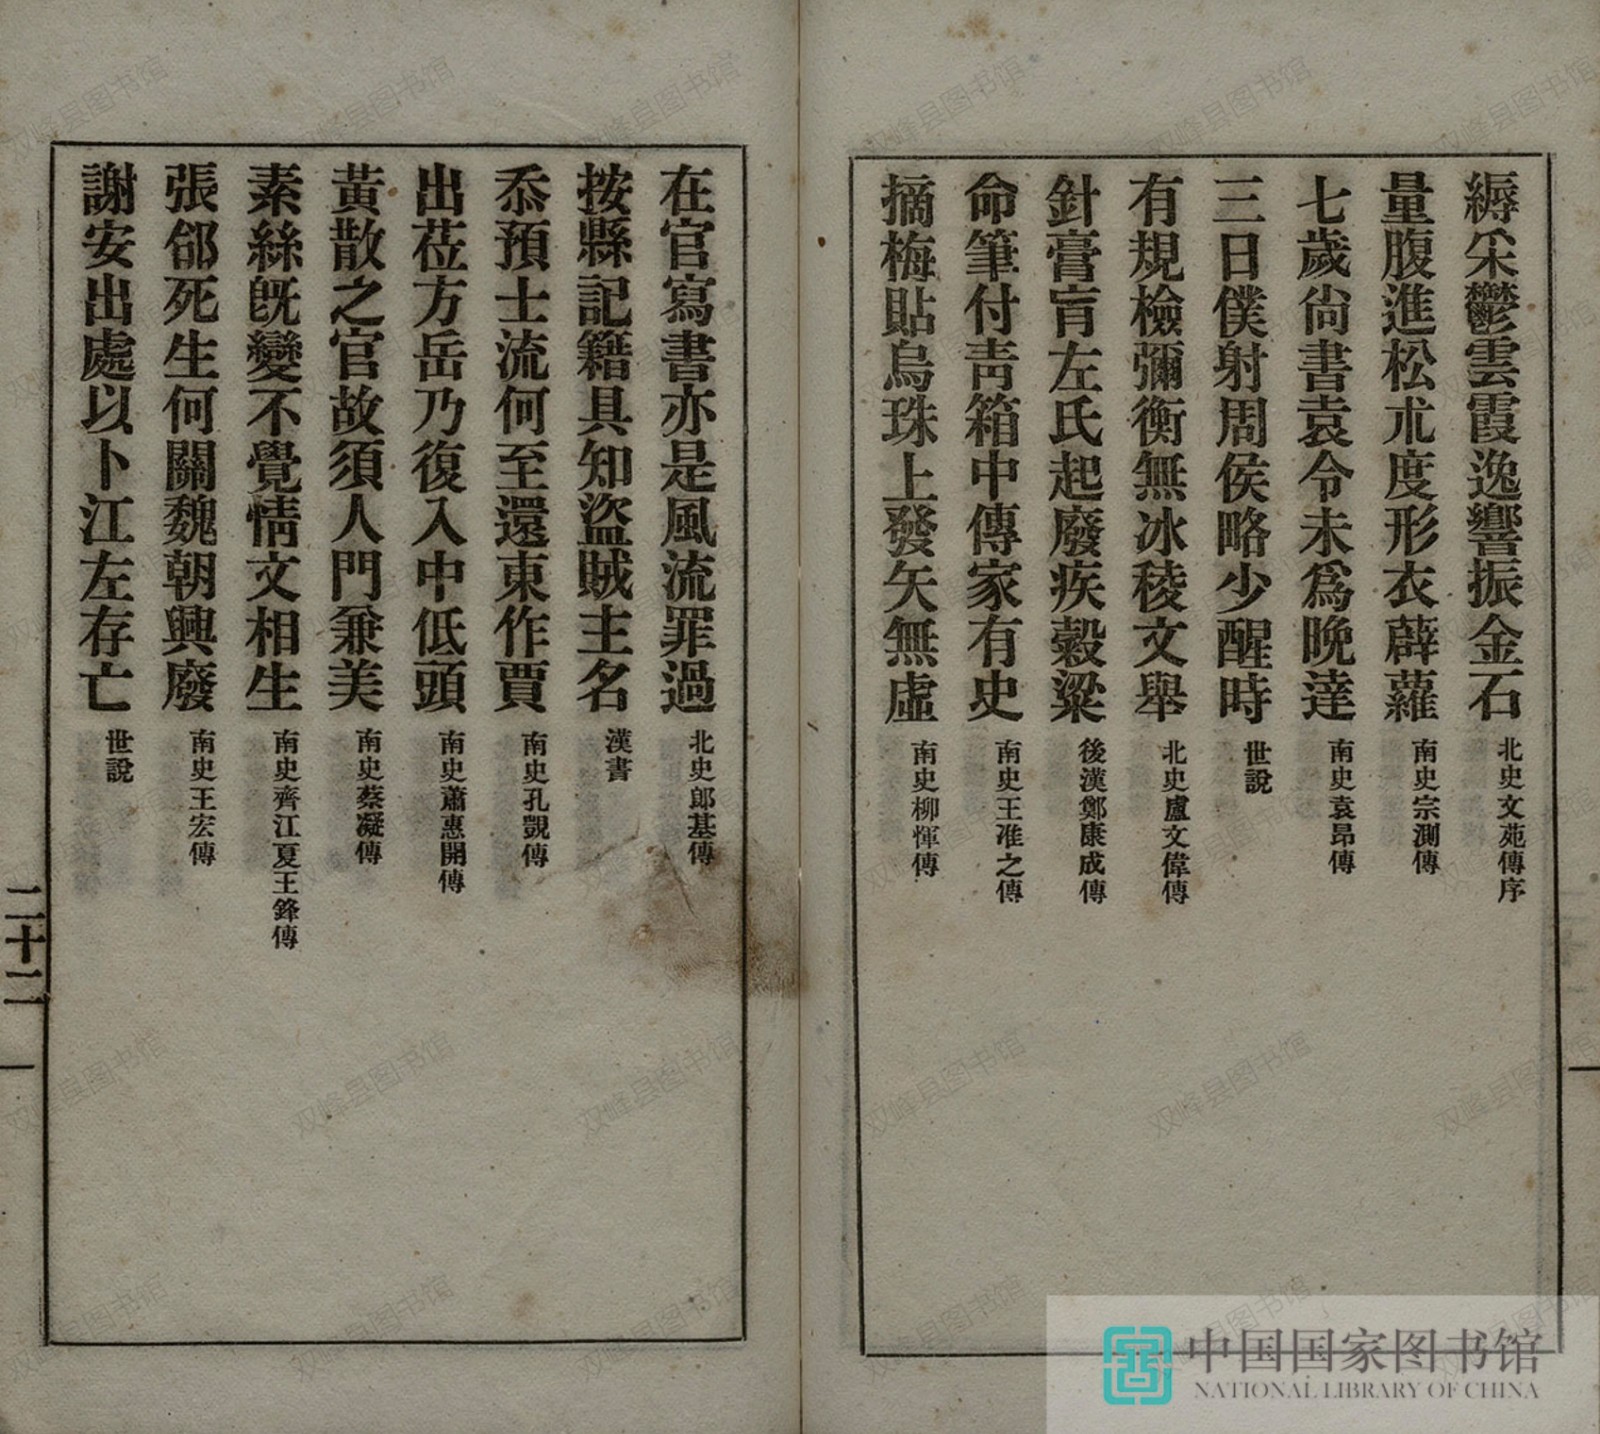 縟采鬱雲霞逸響振金石 北史文苑傳序
量腹進松朮度形衣薜蘿 南史宗測傳
七歲尙書袁令未爲晩達 南史袁昂傳
三日僕射周侯略少醒時 世說
有規檢彌衡無冰稜文舉 北史盧文偉傳
針膏肓左氏起廢疾穀梁 後漢鄭康成傳
命筆付靑箱中傳家有史 南史王准之傳
摘梅貼烏珠上發矢無虛 南史柳惲傳
在官寫書亦是風流罪過 北史郞基傳
按縣記籍具知盜賊主名 漢書
忝預士流何至還東作賈 南史孔覬傳
出莅方岳乃復入中低頭 南史蕭惠開傳
黃散之官故須人門兼美 南史蔡凝傳
素絲旣變不覺情文相生 南史齊江夏王鋒傳
張郃死生何關魏朝興廢 南史王宏傳
謝安出處以卜江左存亡 世說
二十二
中国国家图书馆
NATIONAL LIBRARY OF CHINA
双峰县图书馆